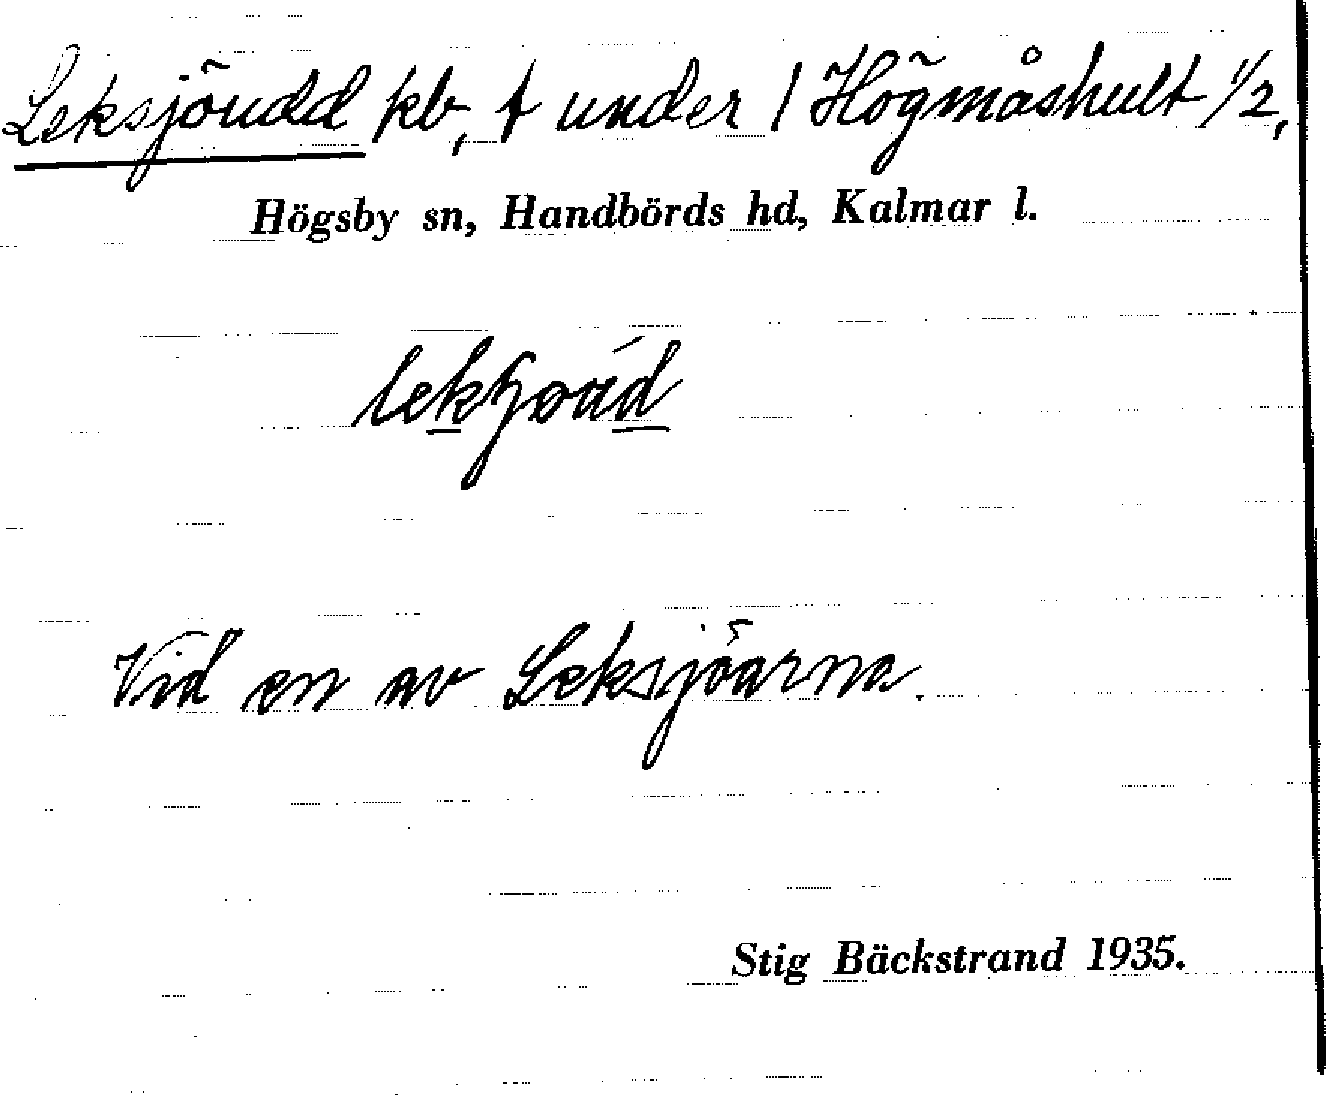 Leksjöudd kb, t under 1 Högmåshult 1/2,
Högsby sn, Handbörds hd, Kalmar l.
Vid en av Leksjöarna.
Stig Bäckstrand 1935.